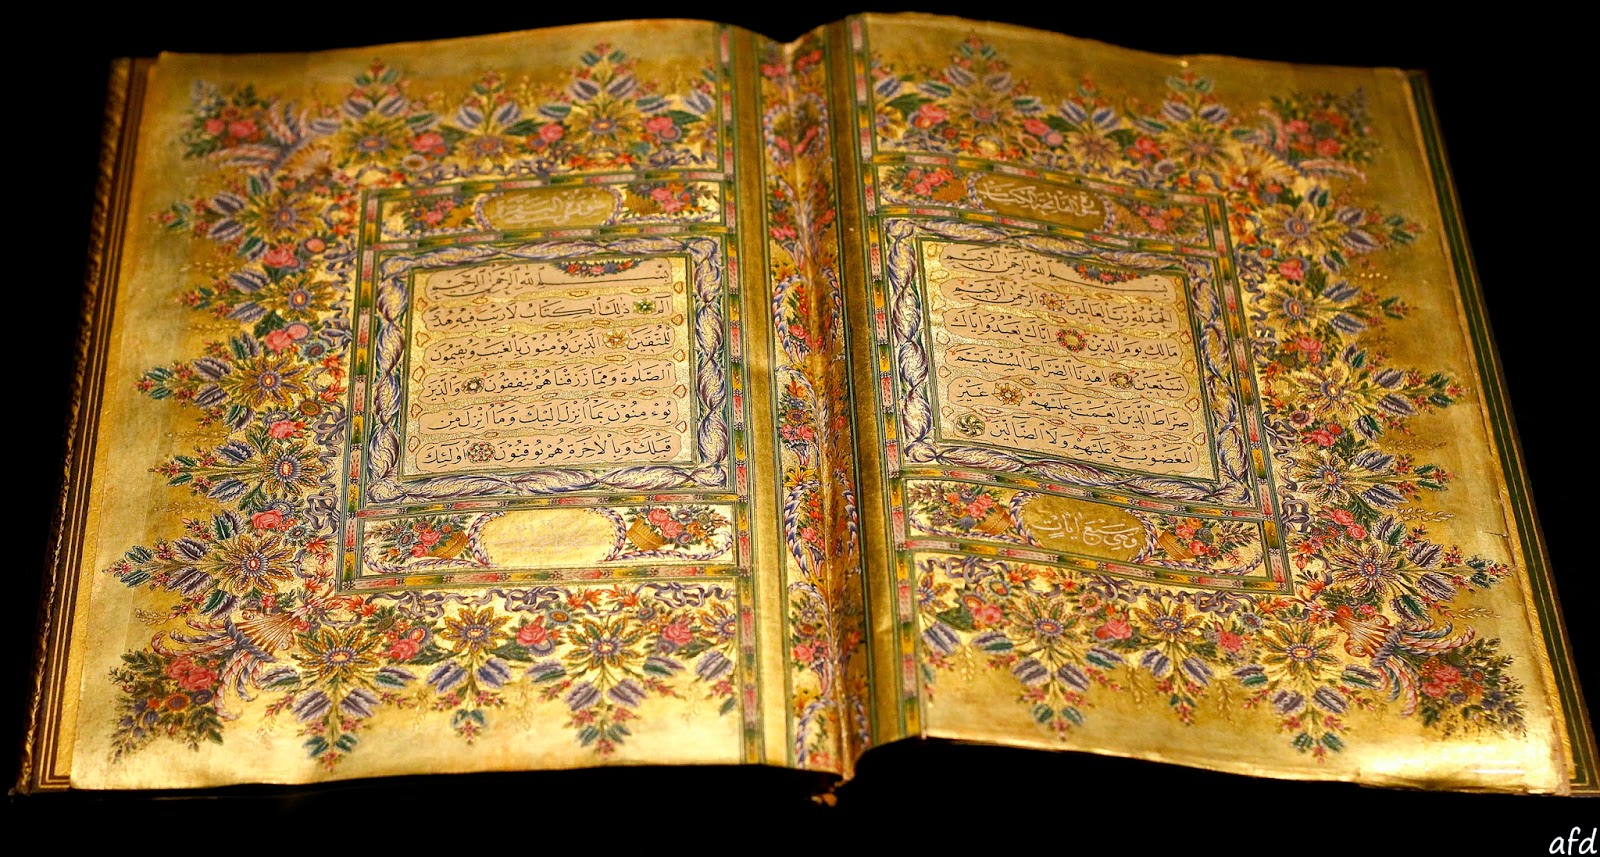 الفاتحة الكتاب
بسم الله الرحمن الرحيم
الحمد لله رب العالمين الرحمن الرحيم
مالك يوم الدين اياك نعبد واياك
نستعين اهدنا الصراط المستقيم
صراط الذين انعمت عليهم غير
المغضوب عليهم ولا الضالين
وهي سبع ايات
البقرة
بسم الله الرحمن الرحيم
الم ذلك الكتاب لا ريب فيه هدى
للمتقين الذين يؤمنون بالغيب ويقيمون
الصلوة ومما رزقناهم ينفقون والذين
يؤمنون بما انزل اليك وما انزل من
قبلك وبالاخرة هم يوقنون اولئك
afd